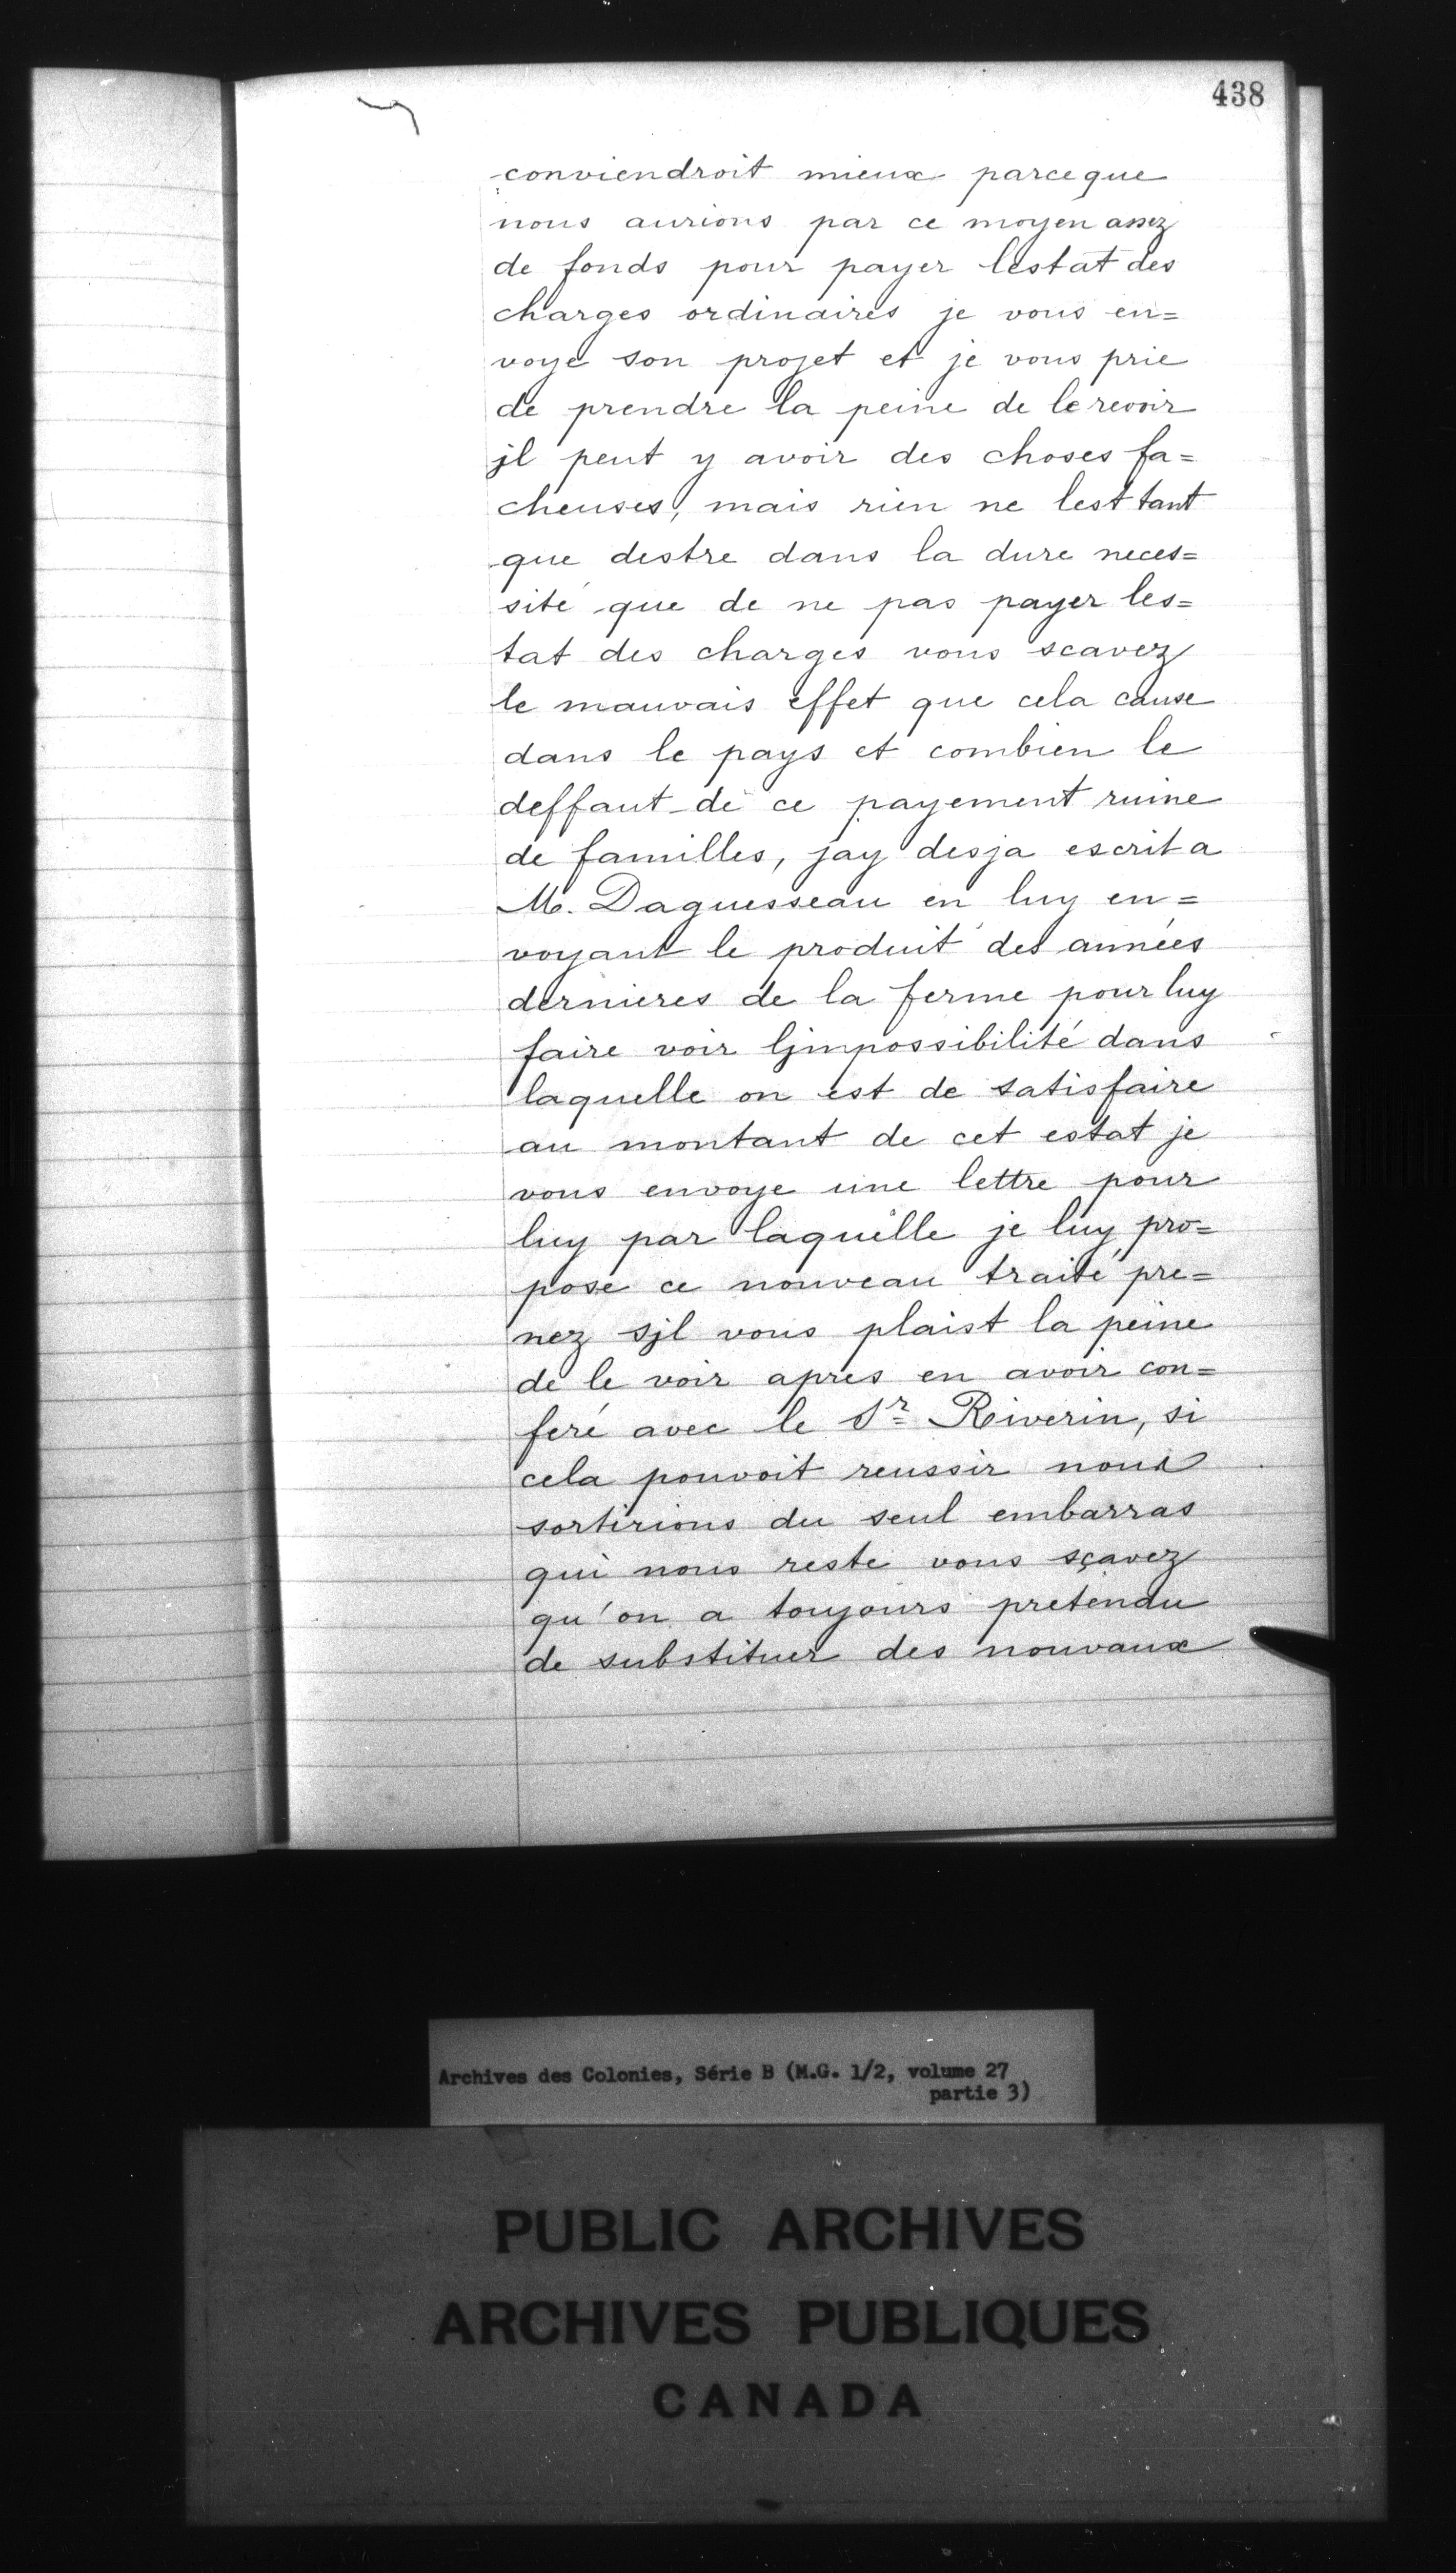 438
conviendroit mieux parceque
nous aurions par ce moyen assez
de fonds pour payer lestat des
charges ordinaires je vous en=
voye son projet et je vous prie
de prendre la peine de le revoir
jl peut y avoir des choses fa=
cheuses, mais rien ne lest tant
que destre dans la dure neces=
sité que de ne pas payer les=
tat des charges vous scavez
le mauvais effet que cela cause
dans le pays et combien le
deffaut de ce payement ruine
de familles, jay desja escrit a
M. Daguesseau en luy en=
voyant le produit des années
dernieres de la ferme pour luy
faire voir ljmpossibilité dans
laquelle on est de satisfaire
au montant de cet estat je
vous envoye une lettre pour
luy par laquelle je luy pro=
pose ce nouveau traité pre=
nez sjl vous plaist la peine
de le voir apres en avoir con=
feré avec le Sr Riverin, si
cela pouvoit reussir nous
sortirions du seul embarras
qui nous reste vous sçavez
qu'on a toujours pretendu
de substituer des nouvaux
Archives des Colonies, Série B (M.G. 1/2, volume 27
partie 3)
PUBLIC ARCHIVES
ARCHIVES PUBLIQUES
CANADA